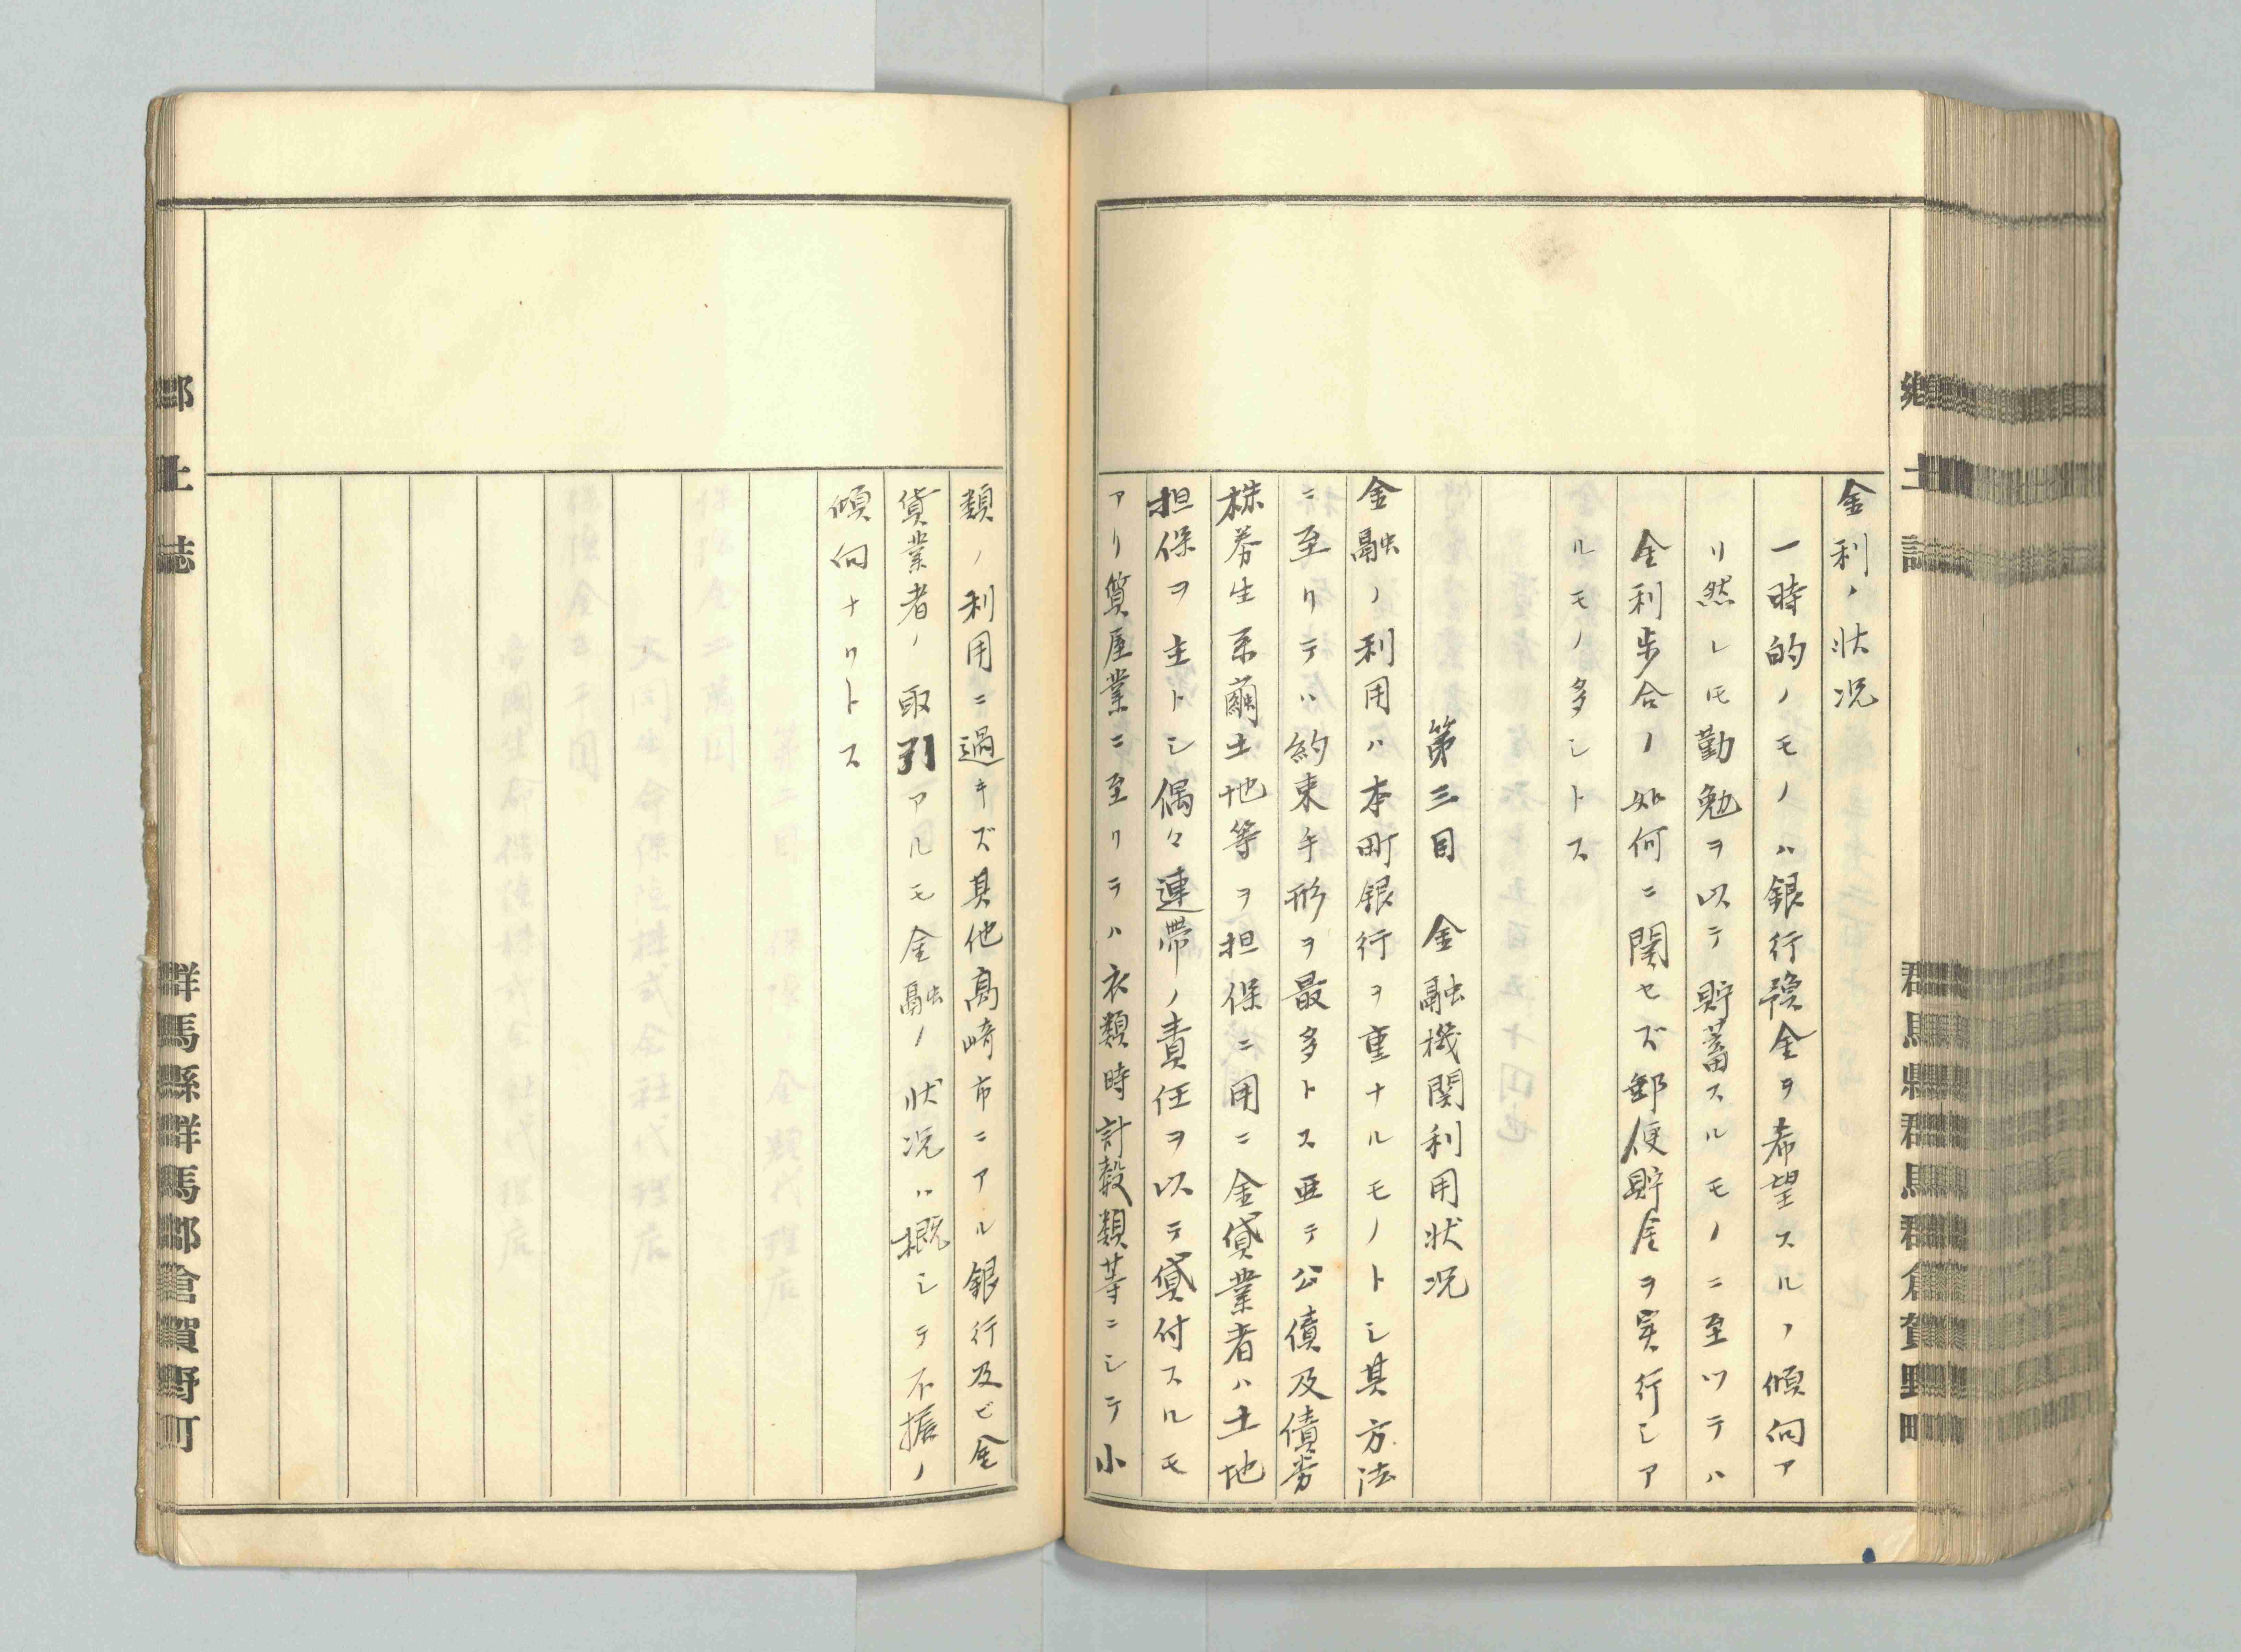 鄉土誌
群馬縣群馬郡倉賀野町
金利ノ状况
一時的ノモノハ銀行預金ヲ希望スルノ傾向ア
リ然レ𪜈勤勉ヲ以テ貯蓄スルモノニ至ツテハ
金利歩合ノ如何ニ関セズ郵便貯金ヲ実行シア
ルモノ多シトス
第三目 金融機関利用状况
金融ノ利用ハ本町銀行ヲ重ナルモノトシ其方法
ニ至リテハ約束手形ヲ最多トス亜テ公債及債券
株券生糸繭土地等ヲ担保ニ用ニ金貸業者ハ土地
担保ヲ主トシ偶々連帯ノ責任ヲ以テ貸付スルモ
アリ質屋業ニ至リテハ衣類時計穀類等ニシテ小
類ノ利用ニ過キズ其他高崎市ニアル銀行及ビ金
貸業者ノ取引アルモ金融ノ状况ハ概シテ不振ノ
傾向ナリトス
郷土誌
群馬縣群馬郡倉賀野町